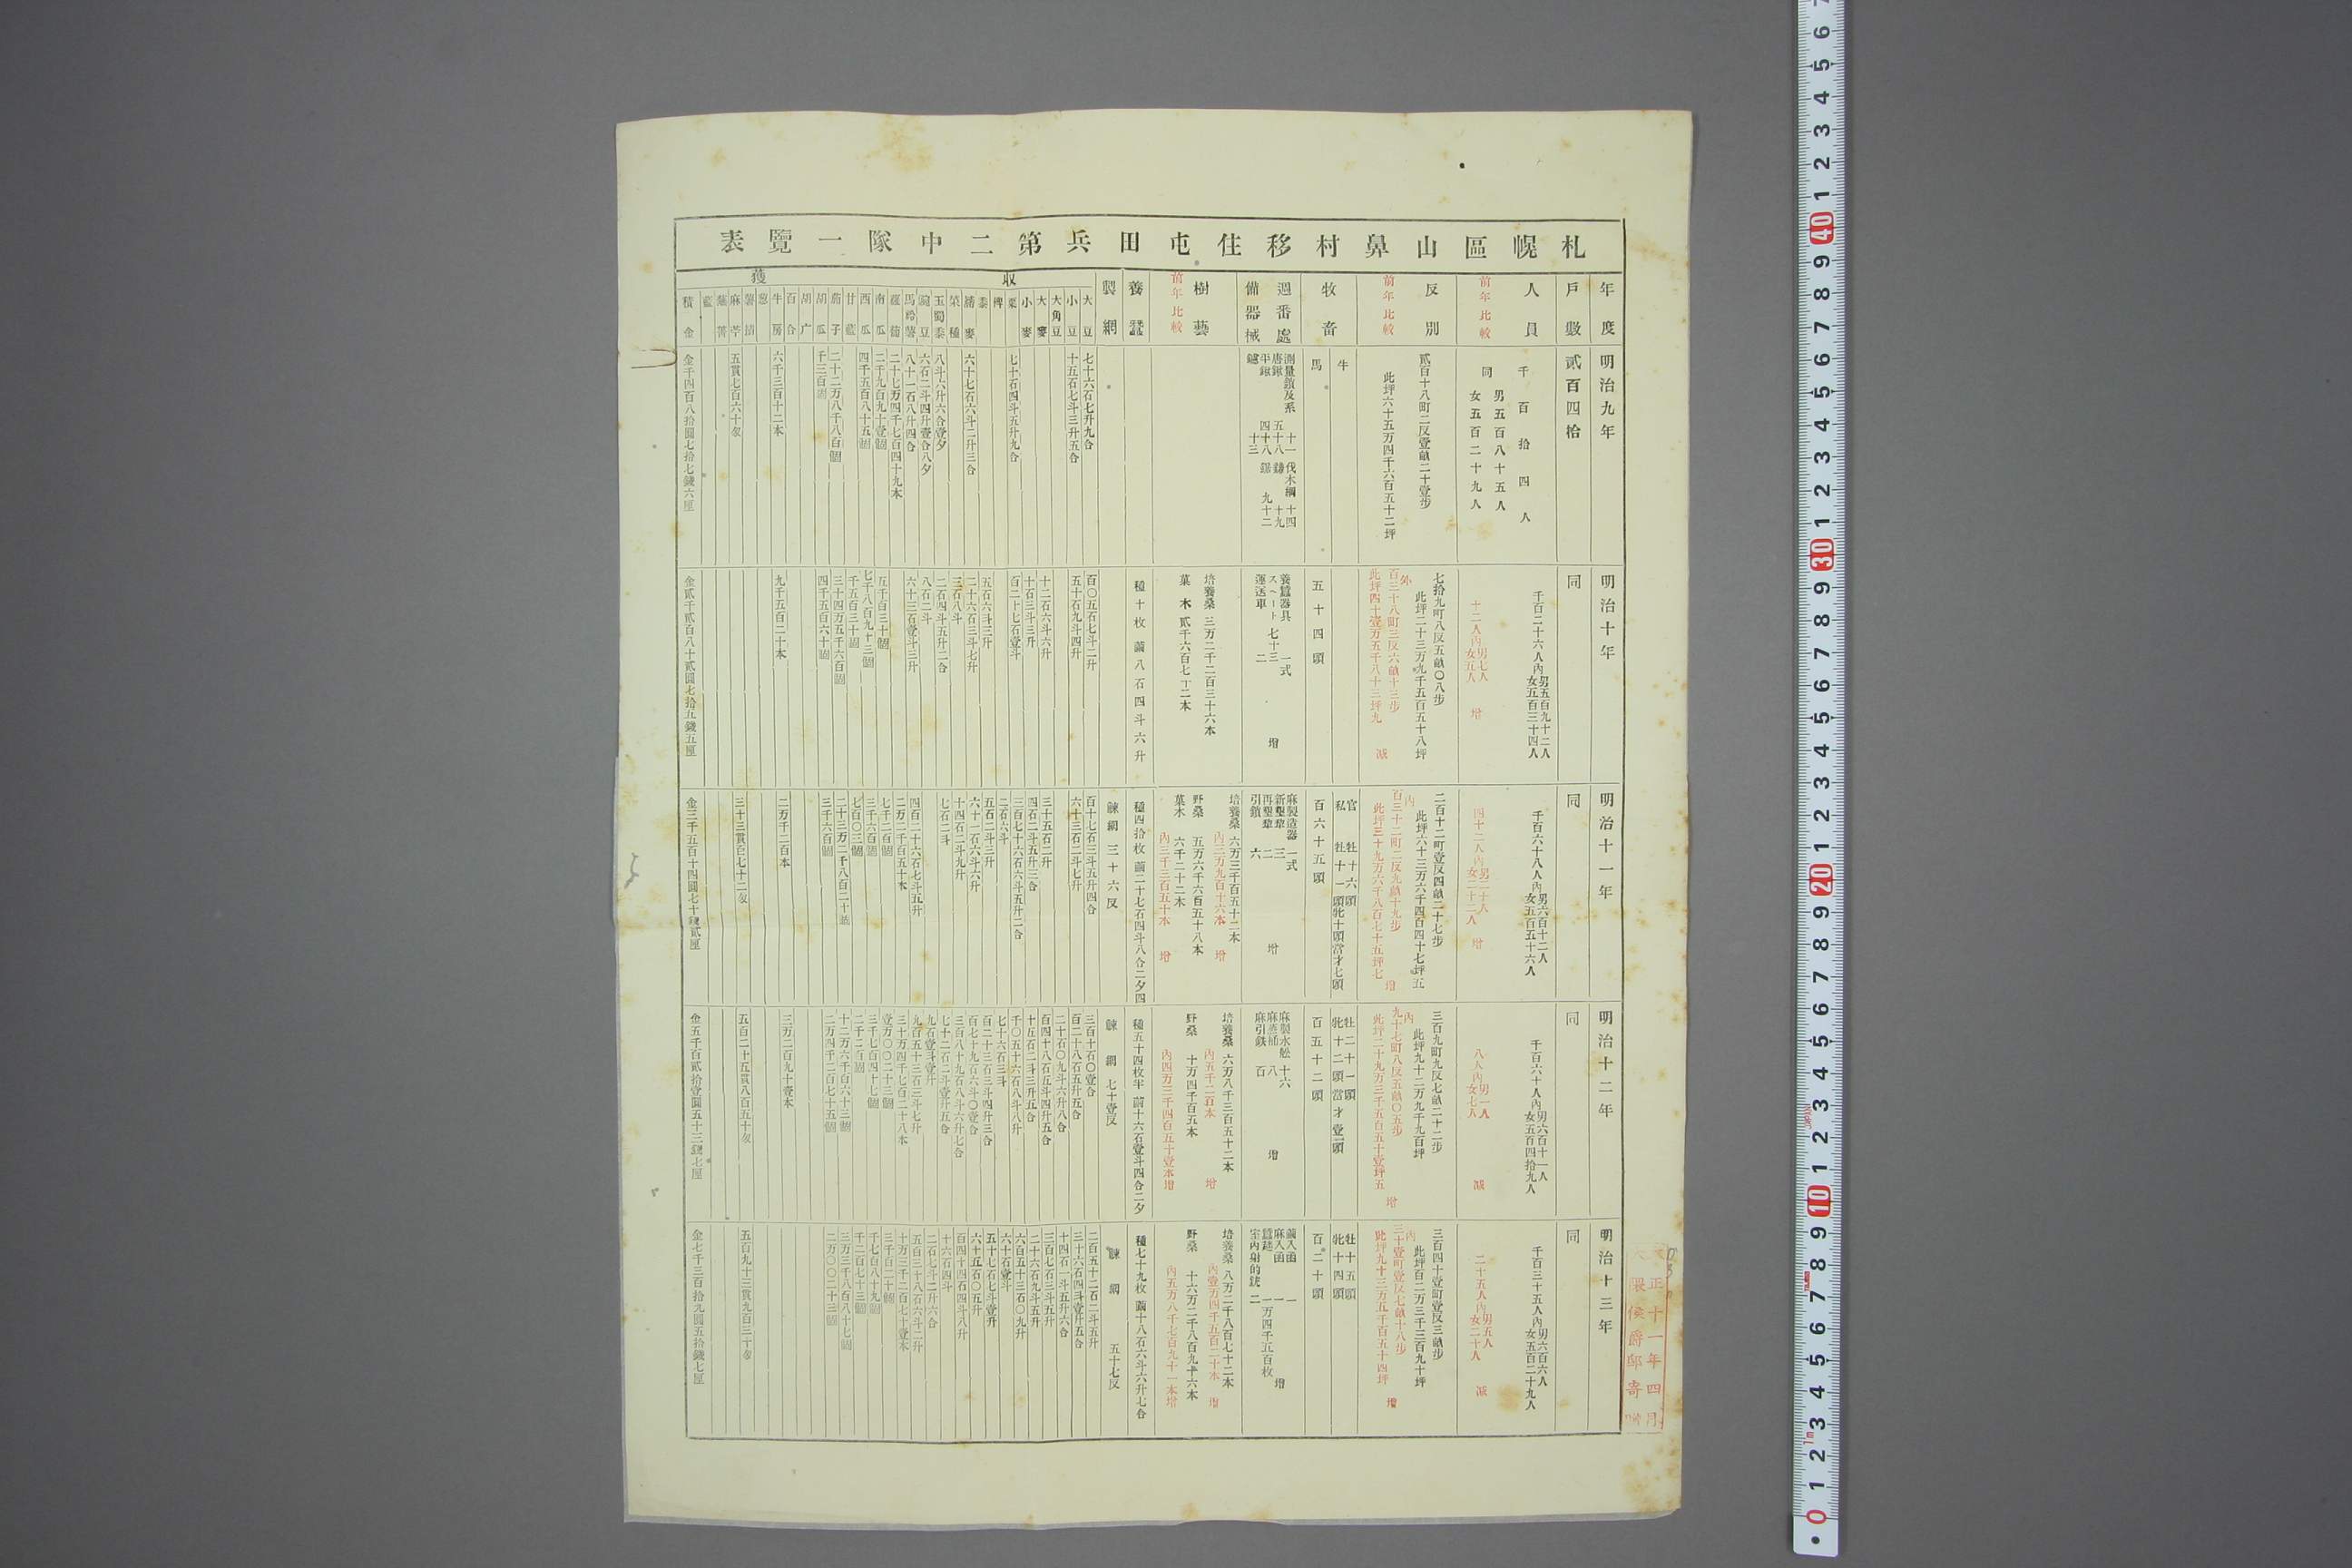 札幌區山鼻村移住屯田兵第二中隊一覽表
年度
戶數
人員
前年比較
反別
前年比較
牧畜
週番處備器械
樹藝
前年比較
養蠶
製網
收獲
大豆
小豆
大角豆
大麥
小麥
粟
稗
黍
蕎麥
菜種
玉蜀黍
豌豆
馬鈴薯
蘿蔔
南瓜
西瓜
甘藍
茄子
胡瓜
百合
牛房
葱
麻苧
藍
積金
明治九年
貳百四拾
千百拾四人
同
男五百八十五人
女五百二十九人
貳百十八町二反壹畝二十壹步
此坪六十五万四千六百五十二坪
牛
馬
測量鎖及系 十一
伐木綱 十四
唐鍬 五十八
平鍬 四十八
鑢 十三
九十二
七十六石七升九合
十五石七斗三升五合
七十石四斗五升九合
六十七石六斗二升三合
八斗六升六合壹夕
六石二斗四升壹合八夕
八十一石八升四合
二十七万四千七百四十九本
二千九百九十壹個
四千五百八十五個
二十二万八千八百個
千三百個
六千三百十二本
五貫七百六十匁
金千四百八拾圓七拾七錢六厘
明治十年
同
千百二十六人內男五百九十二人女五百三十四人
十二人內男七人女五人 增
七拾九町八反五畝〇八步
此坪二十三万九千五百五十八坪
外
百三十八町三反六畝十三步
此坪四十壹万五千八十三坪九 減
五十四頭
養蠶器具 一式
スヘート 七十三
運送車 二
增
培養桑 三万二千二百三十六本
菓木 貳千六百七十二本
種十枚 繭八石四斗六升
百〇五石七斗二升
五十石九斗四升
十二石六斗六升
十石三斗三升
百二十七石壹斗
五石六斗三升
二十六石三斗七升
三石八斗
二石四斗五升二合
八石二斗
六十三石壹斗三升
五千百三十個
七千八百九十三個
千五百三十個
三十四万五千六百個
四千五百六十個
九千五百二十本
金貳千貳百八十貳圓七拾五錢五厘
明治十一年
同
千百六十八人內男六百十二人女五百五十六人
四十二人內男二十人女二十二人 增
二百十二町壹反四畝二十七步
此坪六十三万六千四百四十七坪五
內
百三十二町二反九畝十九步
此坪三十九万六千八百七十五坪七 增
官 牡十六頭
私 牡十一頭牝十頭當才七頭
百六十五頭
麻製造器 一式
新墾犂 三
再墾犂 二
引鎖 六
增
培養桑 六万三千百五十二本
內三万九百十六本 增
野桑 五万六千六百五十八本
菓木 六千二十二木
內三千三百五十本 增
種四拾枚 繭二十七石四斗八合二夕四
諫網 三十六反
百十七石三斗五升四合
六十三石二斗七升
三十五石二升
四石二斗五升三合
三百七十六石六斗五升二合
二石六斗
五百二斗三升
六十一石六斗六升
十四石二斗九升
七石二斗
四百二十六石七斗五升
二万二千百五十本
七千二百個
三千六百個
七百〇三個
二十三万二千八百二十個
三千六百個
二万千二百本
三十三貫百七十二匁
金三千五百十四圓七十錢貳厘
明治十二年
同
千百六十人內男六百十一人女五百四拾九人
八人內男一人女七人 減
三百九町九反七畝二十二步
此坪九十二万九千九百坪
內
九十七町八反五畝〇五步
此坪二十九万三千五百五十壹坪五 增
牡二十一頭
牝十二頭當才壹頭
百五十二頭
麻製水舩 十六
麻蒸桶 八
麻引鉄 百
增
培養桑 六万八千三百五十二本
內五千二百本 增
野桑 十万四千百五本
內四万三千四百五十壹本增
種五十四枚半 繭十六石壹斗四合二夕
諫網 七十壹反
三百十石〇壹合
百二十八石五升五合
二十石〇九斗六升八合
百四十八石五斗四升五合
十五石二斗三升五合
千〇五十六石八斗八升
七十六石三斗
百二十三石三斗四升三合
百七十九石六斗〇壹合
三百八十九石八斗六升七合
七十二石二斗壹升五合
九石壹斗壹升
九百五十三石三斗七升
三十万四千七百二十八本
壹万〇〇二十三個
三千七百四十七個
二千二百個
十二万六千百六十三個
二万四千二百七十五個
三万二百九十壹本
五百二十五貫八百五十匁
金五千百貳拾壹圓五十三錢七厘
明治十三年
同
千百三十五人內男六百六人女五百二十九人
二十五人內男五人女二十人 減
三百四十壹町壹反三畝步
此坪百二万三千三百九十坪
內
三十壹町壹反七畝十八步
此坪九十三万五千百五十四坪 增
牡十五頭
牝十四頭
百二十頭
繭入函 一
麻入函 一
蠶莚 一万四千五百枚
室內射的銃 二
增
培養桑 八万二千八百七十二本
內壹万四千五百二十本 增
野桑 十六万二千八百九十六本
內五万八千七百九十一本增
種七十九枚 繭十八石六斗六升七合
諫網 五十七反
二百五十二石二斗五升
三十六石四斗壹升五合
十四石一斗五升六合
三百七石三斗五升
二十六石九斗五升
六百五十三石〇九升
六十石壹斗
五十七石七斗壹升
六十五石〇五升
百四十四石四斗八升
十六石四斗
二石七斗二升六合
五百三十八石六斗二升
十万三千二百七十壹本
三千百二十個
千七百八十九個
千二百七十三個
三万三千八百八十七個
二万〇〇二十三個
五百九十三貫九百三十匁
金七千三百拾九圓五拾錢七厘
大正十一年四月
大隈侯爵邸寄贈